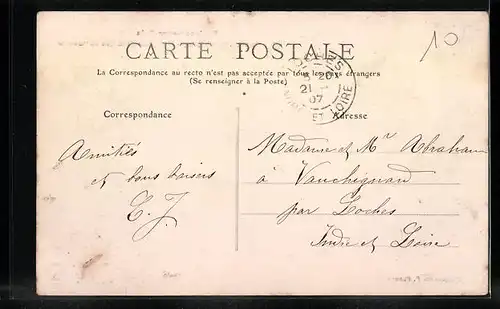 10
CARTE POSTALE
La Correspondance au recto n'est pas acceptée par tous les pays étrangers
(Se renseigner à la Poste)
20
21
07
ET LOIRE
Correspondance
Adresse
Amitiés
et bons baisers
E. J.
Madame et Mr Abraham
à Vauchignard
par Loches
Indre et Loire